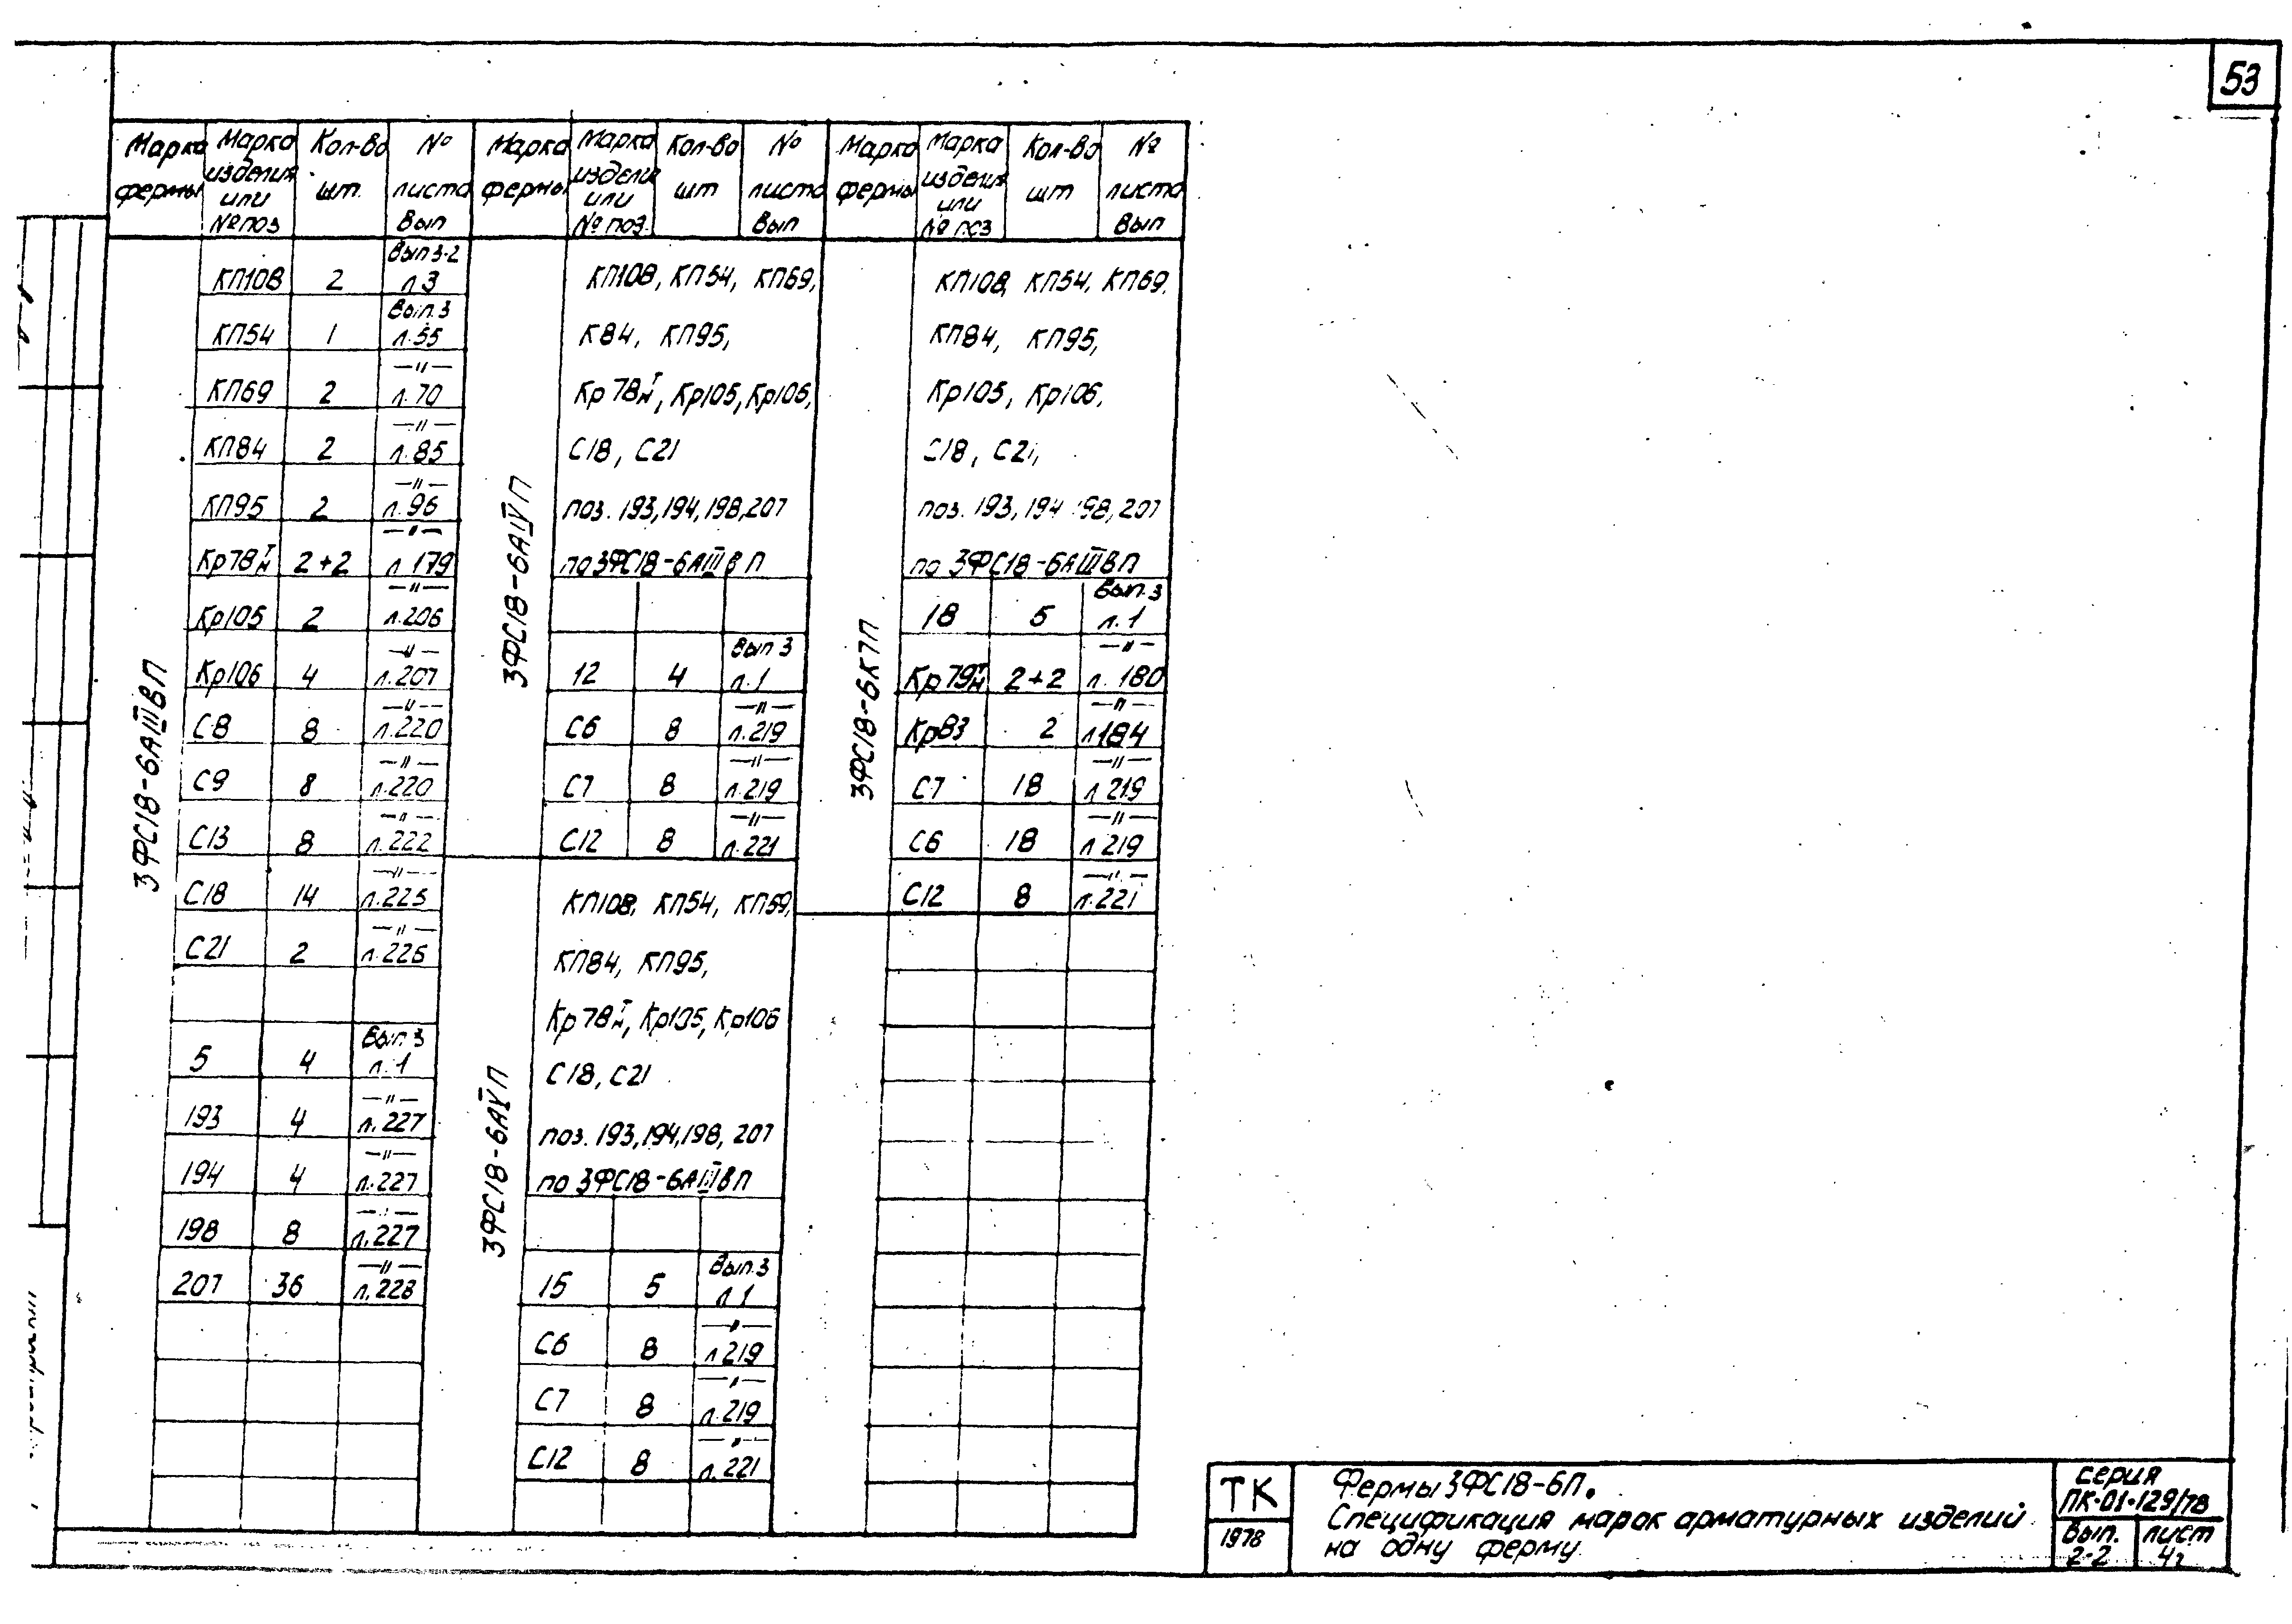 53
Марка фермы | Марка изделия или № поз | Кол-во шт. | № листа Вып | Марка фермы | Марка изделия или № поз. | Кол-во шт | № листа Вып | Марка фермы | Марка изделия или № поз | Кол-во шт | № листа Вып
3ФС18-6АIIIВП
КП108 2 Вып3-2 л3
КП54 1 Вып.3 л.55
КП69 2 —"— л.70
КП84 2 —"— л.85
КП95 2 —"— л.96
Кр78 т/н 2+2 —"— л179
Кр105 2 —"— л.206
Кр106 4 —"— л.207
С8 8 —"— л.220
С9 8 —"— л.220
С13 8 —"— л.222
С18 14 —"— л.225
С21 2 —"— л.226
5 4 Вып.3 л.1
193 4 —"— л.227
194 4 —"— л.227
198 8 —"— л.227
207 36 —"— л.228
3ФС18-6АIVП
КП108, КП54, КП69,
К84, КП95,
Кр78 т/н, Кр105, Кр106,
С18, С21
поз. 193,194,198,207
по 3ФС18-6АIIIВП
12 4 Вып 3 л.1
С6 8 —"— л.219
С7 8 —"— л.219
С12 8 —"— л.221
3ФС18-6АVП
КП108, КП54, КП69,
КП84, КП95,
Кр78 т/н, Кр105, Кр106
С18, С21
поз. 193,194,198, 207
по 3ФС18-6АIIIВП
15 5 Вып.3 л1
С6 8 —"— л219
С7 8 —"— л.219
С12 8 —"— л.221
3ФС18-6К7П
КП108, КП54, КП69.
КП84, КП95,
Кр105, Кр106,
С18, С21,
поз. 193, 194 198, 207
по 3ФС18-6АIIIВП
18 5 Вып.3 л.1
Кр79 т/н 2+2 —"— л. 180
Кр83 2 —"— л184
С7 18 —"— л219
С6 18 —"— л219
С12 8 —"— л.221
ТК
1978
Фермы 3ФС18-6П.
Спецификация марок арматурных изделий
на одну ферму
серия
ПК-01-129/78
Вып. 2-2
лист